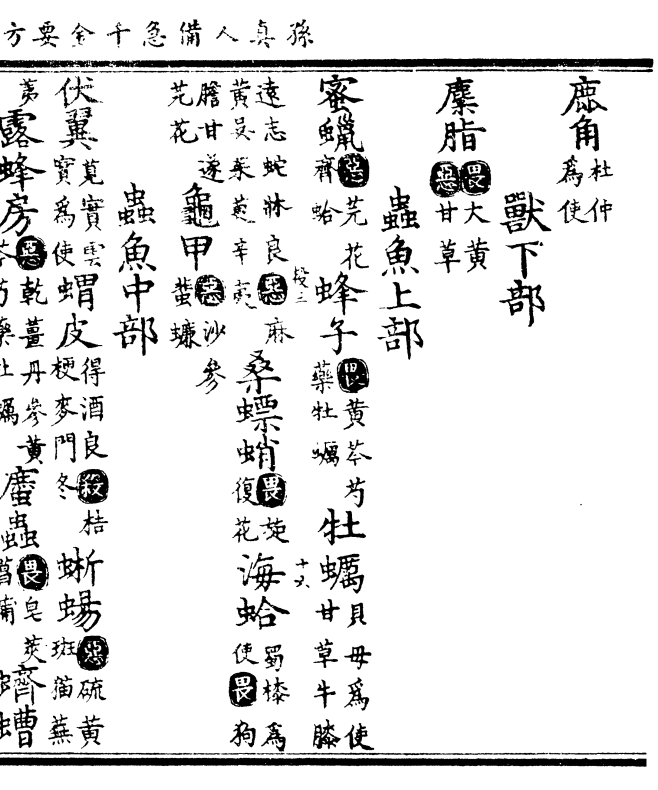 孫真人備急千金要方
鹿角杜仲為使
獸下部
麋脂畏大黃惡甘草
蟲魚上部
蜜蠟惡芫花齊蛤蜂子畏黃芩芍藥牡蠣牡蠣貝母為使甘草牛膝
遠志蛇牀良惡麻黃吳茱萸辛夷桑螵蛸畏旋復花海蛤蜀漆為使畏狗
膽甘遂芫花龜甲惡沙參蜚蠊
蟲魚中部
伏翼莧實雲實為使蝟皮得酒良殺桔梗麥門冬蜥蜴惡硫黃斑猫蕪
荑露蜂房惡乾薑丹參黃芩芍藥牡蠣䗪蟲畏皂莢菖蒲蠐螬